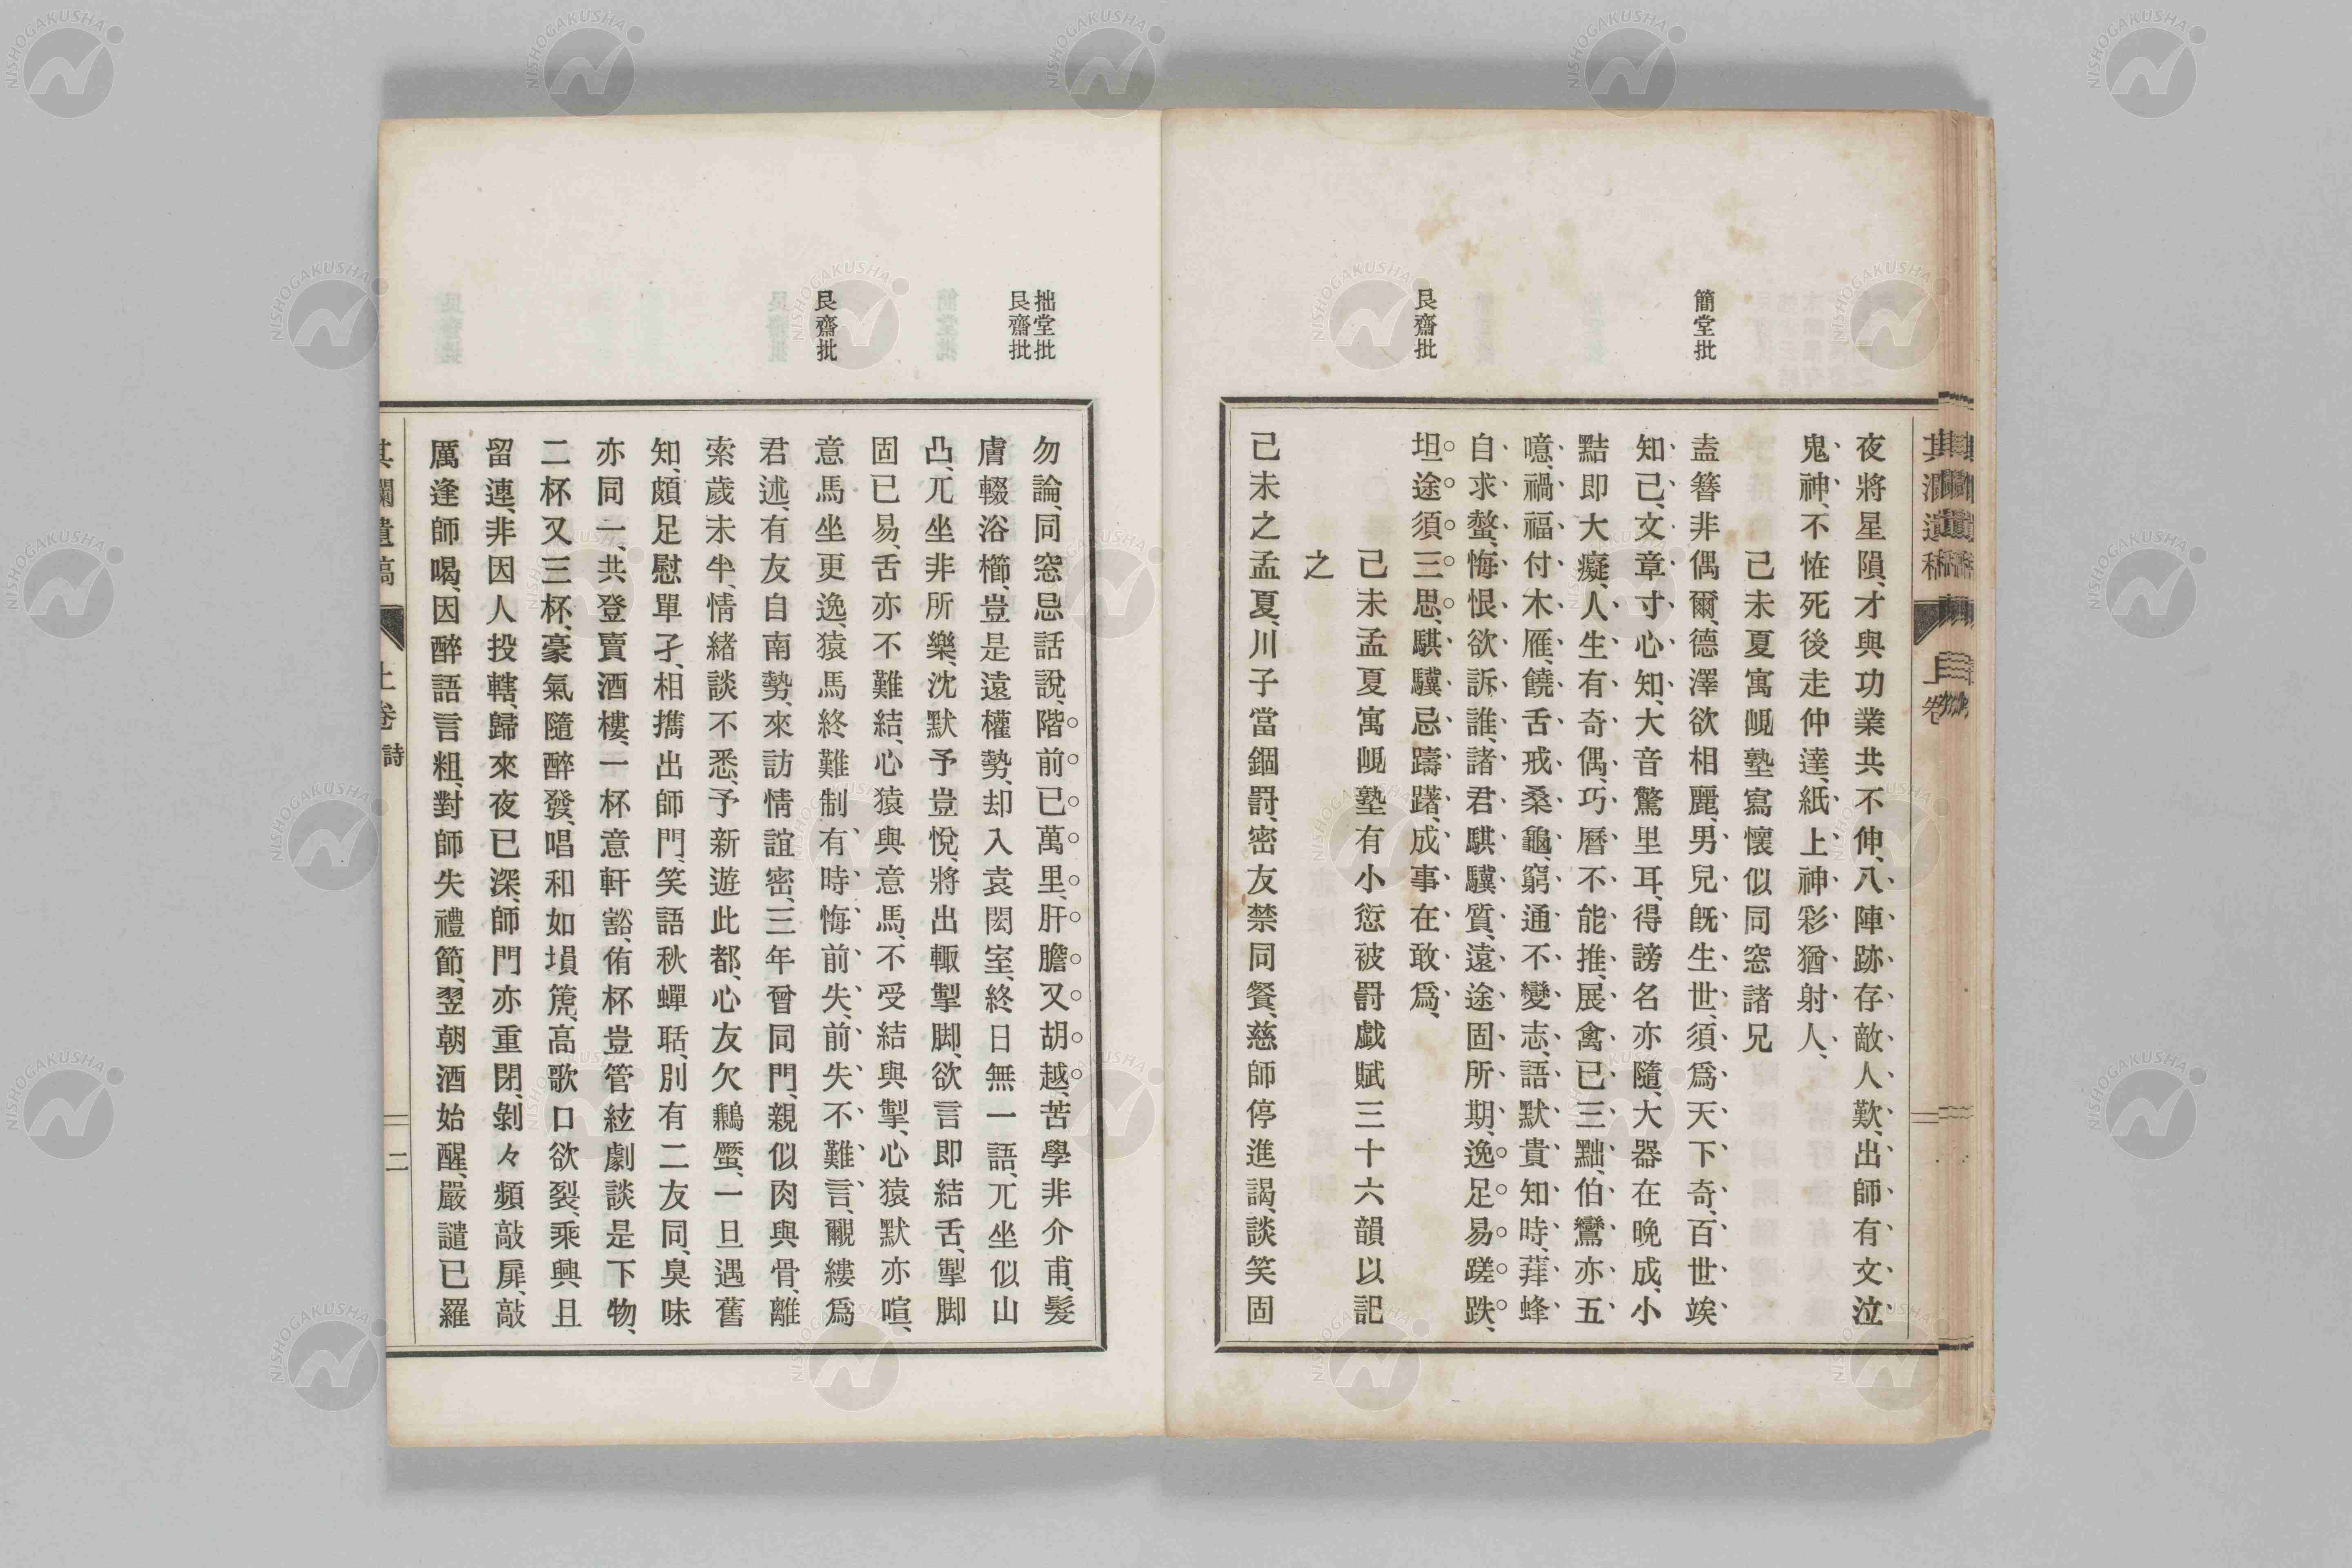 簡堂批
艮齋批
夜將星隕、才與功業共不伸、八陣跡存敵人歎、出師有文泣
鬼神、不恠死後走仲達、紙上神彩猶射人、
己未夏寓峴塾寫懷似同窓諸兄
盍簪非偶爾、德澤欲相麗、男兒旣生世、須爲天下奇、百世竢
知己、文章寸心知、大音驚里耳、得謗名亦隨、大器在晩成、小
黠即大癡、人生有奇偶、巧曆不能推、展禽已三黜、伯鸞亦五
噫、禍福付木雁、饒舌戒桑龜、窮通不變志、語默貴知時、荓蜂
自求螫、悔恨欲訴誰、諸君騏驥質、遠途固所期、逸足易蹉跌、
坦途須三思、騏驥忌躊躇、成事在敢爲、
己未孟夏寓峴塾有小愆被罸戯賦三十六韻以記
之
己未之孟夏、川子當錮罸、密友禁同餐、慈師停進謁、談笑固
其瀾遺稿 上卷
拙堂批
艮齋批
艮齋批
勿論、同窓忌話說、階前已萬里、肝膽又胡越、苦學非介甫、髮
膚輟浴櫛、豈是遠權勢、却入袁閎室、終日無一語、兀坐似山
凸、兀坐非所樂、沈默予豈悅、將出輙掣脚、欲言即結舌、掣脚
固已易、舌亦不難結、心猿與意馬、不受結與掣、心猿默亦喧、
意馬坐更逸、猿馬終難制、有時悔前失、前失不難言、覼縷爲
君述、有友自南勢、來訪情誼密、三年曾同門、親似肉與骨、離
索歲未半、情緒談不悉、予新遊此都、心友欠鶼蟨、一旦遇舊
知、頗足慰單孑、相攜出師門、笑語秋蟬聒、別有二友同、臭味
亦同一、共登賣酒樓、一杯意軒豁、侑杯豈管絃、劇談是下物、
二杯又三杯、豪氣隨醉發、唱和如塤篪、高歌口欲裂、乘興且
留連、非因人投轄、歸來夜已深、師門亦重閉、剝々頻敲扉、敲
厲逢師喝、因醉語言粗、對師失禮節、翌朝酒始醒、嚴譴已羅
其瀾遺稿 上卷 詩 二